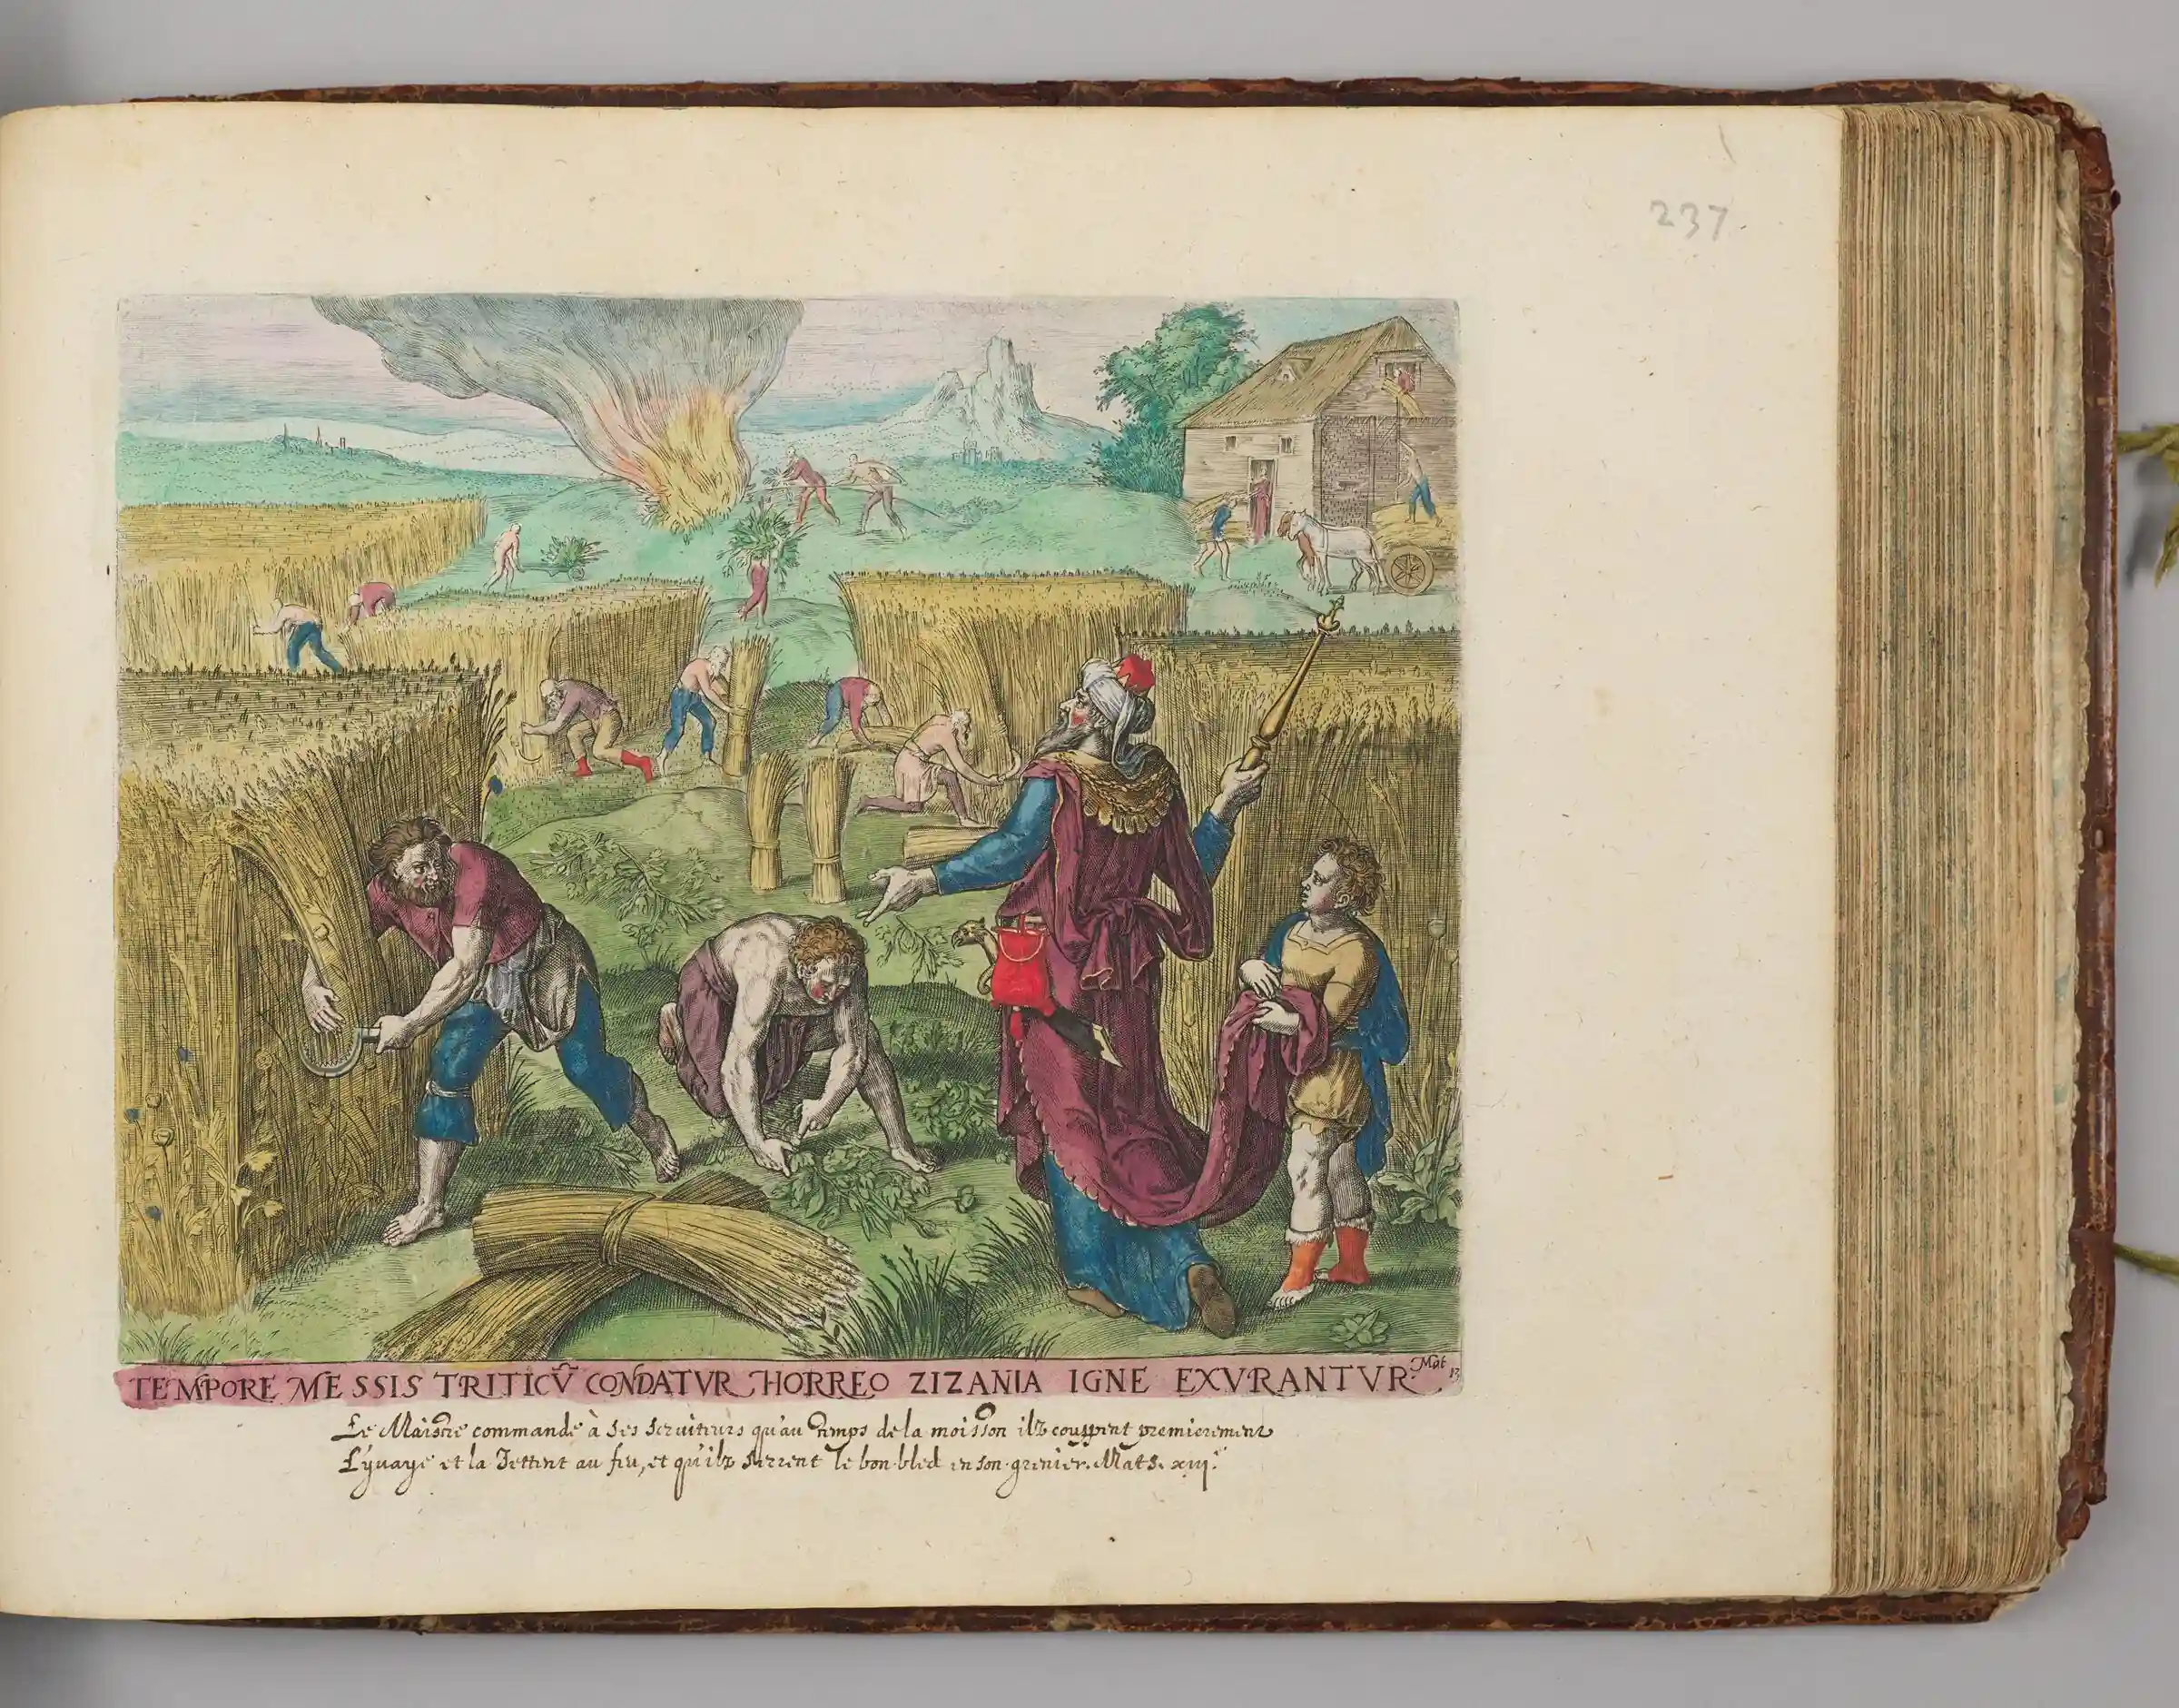 237.
TEMPORE MESSIS TRITICŨ CONDATVR HORREO ZIZANIA IGNE EXVRANTVR. Mat 13
Le Maistre commande à ses seruiteurs qu'au temps de la moisson ilz couppent premierement
L'yuaye et la Jettent au feu, et qu'ilz serrent le bon bled en son grenier. Mat. xiij.